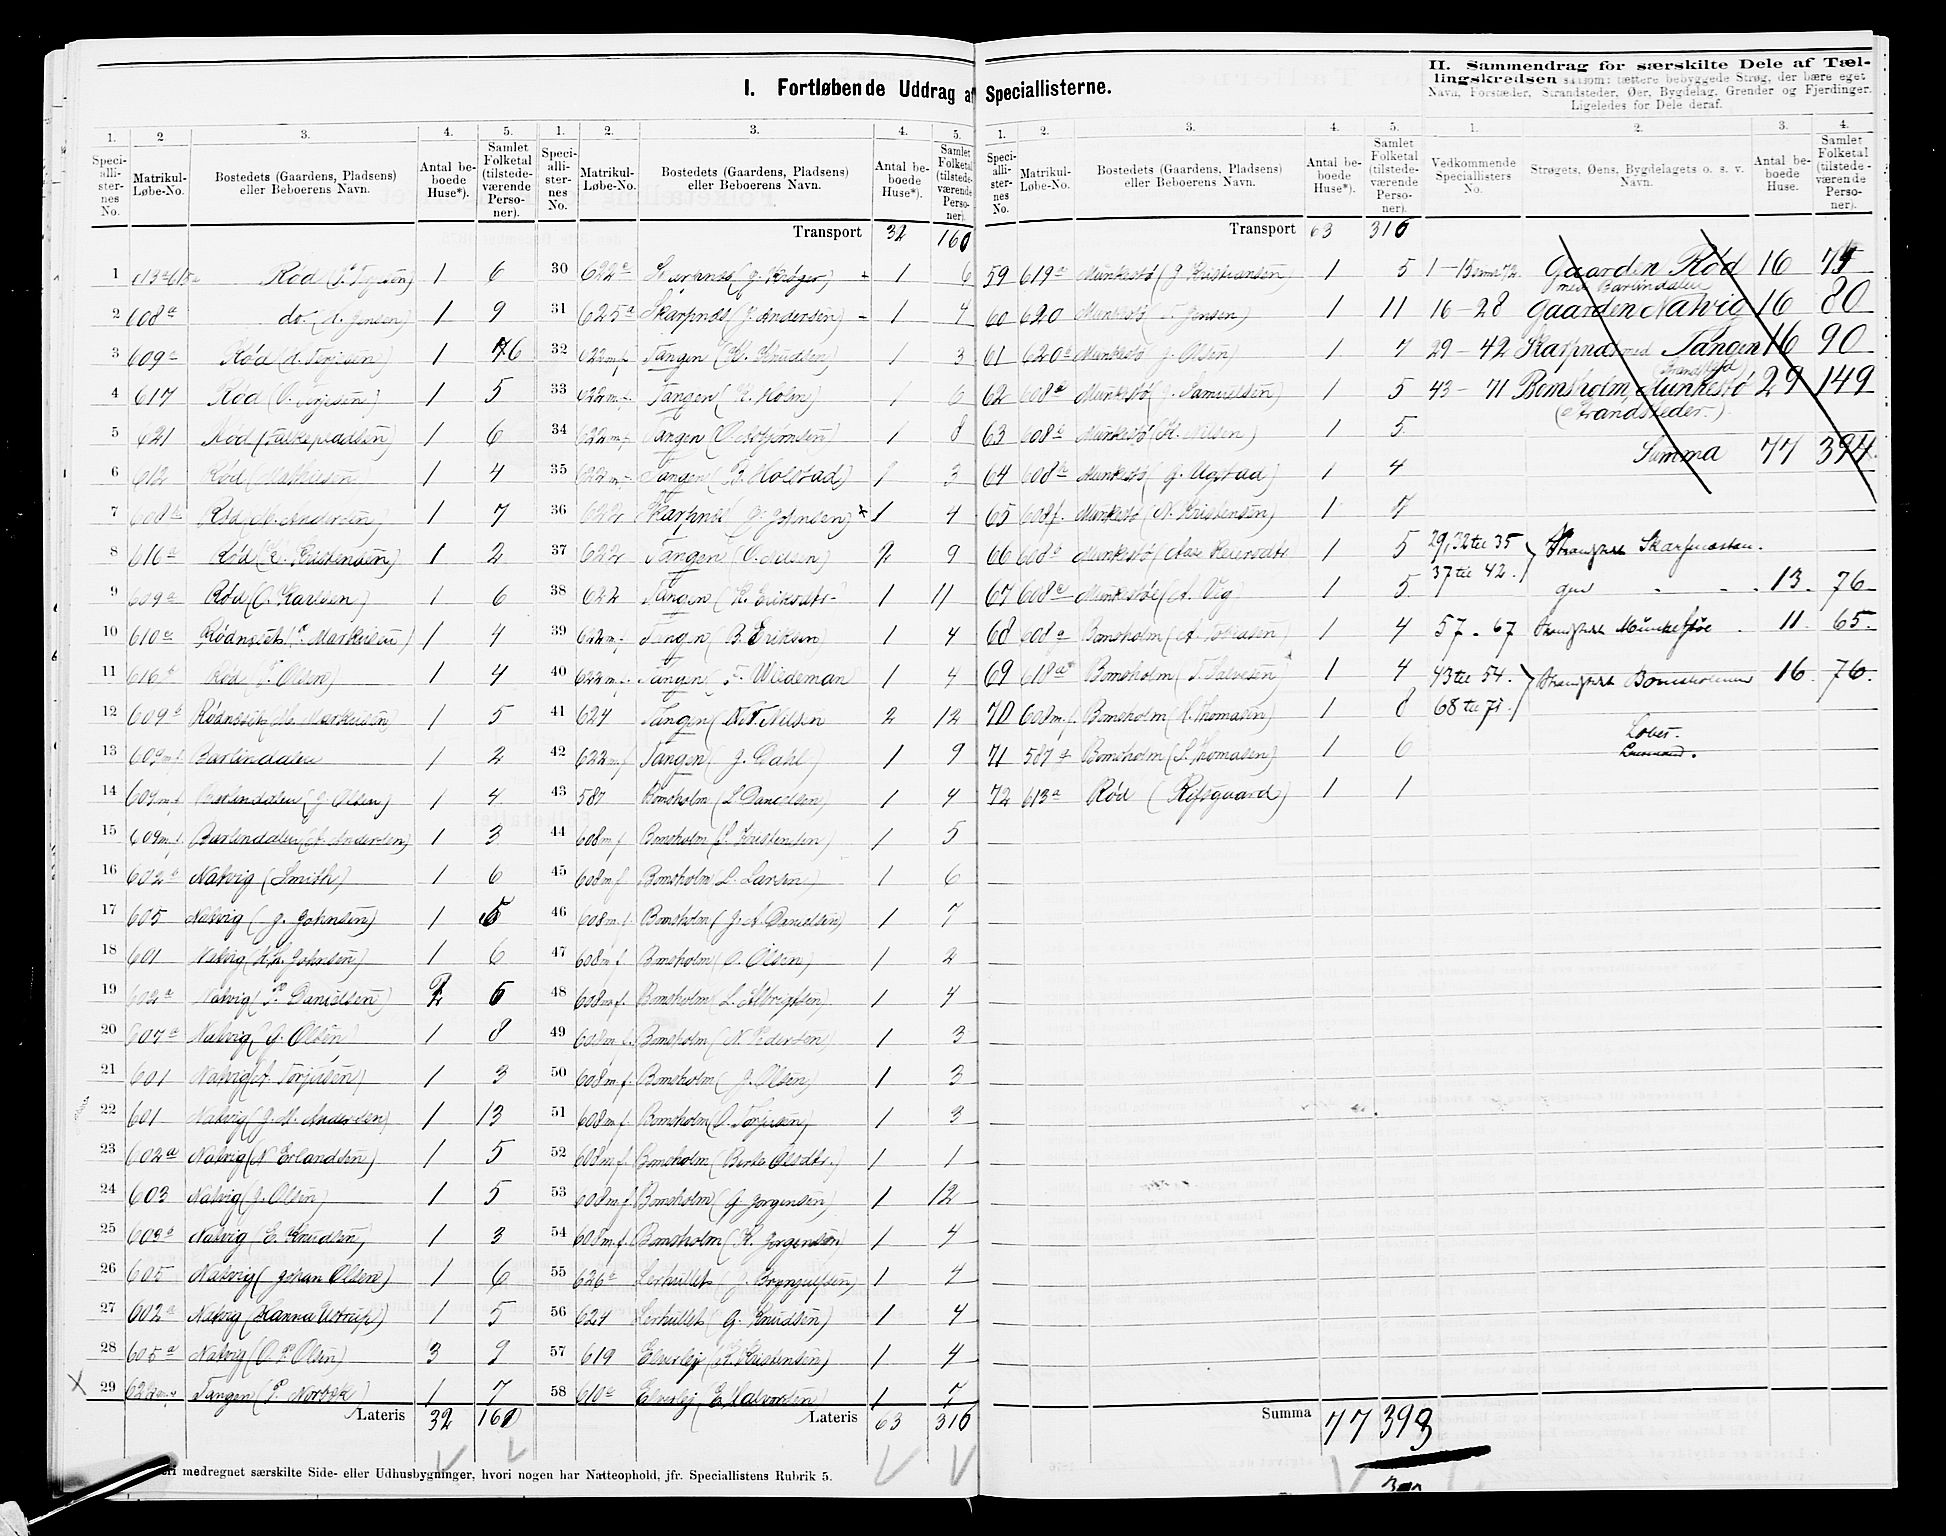 I. Fortløbende Uddrag af Speciallisterne.
II. Sammendrag for særskilte Dele af Tæl-
lingskredsen saasom: tættere bebyggede Strøg, der bære eget
Navn, Forstæder, Strandsteder, Øer, Bygdelag, Grender og Fjerdinger.
Ligeledes for Dele deraf.
1. 2 3. 4. 5. 1. 2. 3. 4. 5. 1. 2. 3. 4. 5. 1. 2. 3. 4.
Speci-alli-ster-nes No. Matrikul-Løbe-No. Bostedets (Gaardens, Pladsens) eller Beboerens Navn. Antal be-boede Huse*). Samlet Folketal (tilstede-værende Perso-ner).
Speci-alli-ster-nes No. Matrikul-Løbe-No. Bostedets (Gaardens, Pladsens) eller Beboerens Navn. Antal be-boede Huse*). Samlet Folketal (tilstede-værende Perso-ner).
Speci-alli-ster-nes No. Matrikul-Løbe-No. Bostedets (Gaardens, Pladsens) eller Beboerens Navn. Antal be-boede Huse*). Samlet Folketal (tilstede-værende Perso-ner).
Vedkommende Speciallisters No. Strøgets, Øens, Bygdelagets o. s. v. Navn. Antal be-boede Huse. Samlet Folketal (tilstede-værende Perso-ner).
1 Rød 1 6
2 608a do. (A. Jensen) 1 9
3 609a Rød 1 6
4 617 Rød 1 5
5 621 Rød (Falkepladsen) 1 6
6 612 Rød (Mathiesen) 1 4
7 608 Rød (M. Andersen) 1 7
8 616a Rød (K. Kristensen) 1 2
9 609a Rød (O. Karlsen) 1 6
10 610a Rødnoset (P. Markusen) 1 4
11 616b Rød (P. Olsen) 1 4
12 609b 1 5
13 609m.f. Barlindalen 1 2
14 609m.f. Barlindalen (J. Olsen) 1 4
15 609m.f. Barlindalen (A. Andersen) 1 3
16 602b Natvig (Smith) 1 6
17 605 Natvig (J. Johnsen) 1 5
18 601 Natvig (Johnsen) 1 6
19 602a Natvig (P. Danielsen) 2 6
20 607a Natvig (J. Olsen) 1 8
21 601 Natvig (Torjusen) 1 3
22 601 Natvig (J. M. Andersen) 1 13
23 602a Natvig (N. Erlandsen) 1 5
24 603 Natvig (J. Olsen) 1 5
25 603b Natvig (E. Knudsen) 1 3
26 605 Natvig (Johan Olsen) 1 6
27 602a Natvig (Hanna Ustrup) 1 5
28 605a Natvig (O. P. Olsen) 3 9
29 622m.f. Tangen 1 7
Lateris 32 160
Transport 32 160
30 622a Skarpnes (J. Krøger) 1 6
31 625a Skarpnes (J. Andersen) 1 4
32 622m.f. Tangen (K. Knudsen) 1 3
33 622m.f. Tangen (K. Holm) 1 6
34 622m.f. Tangen (O. Asbjørnsen) 1 8
35 622m.f. Tangen (B. Holstad) 1 3
36 622 Skarpnes (J. Johnsen) 1 4
37 622 Tangen (O. Nilsen) 2 9
38 622 Tangen (K. Eriksdtr.) 1 11
39 622m.f. Tangen (B. Eriksen) 1 4
40 622m.f. Tangen (F. Wiedeman) 1 4
41 624 Tangen (N. T. Nilsen) 2 12
42 622m.f. Tangen (J. Dahl) 1 9
43 587 Bomsholm (L. Danielsen) 1 4
44 608m.f. Bomsholm (L. Kristensen) 1 5
45 608m.f. Bomsholm (L. Larsen) 1 6
46 608m.f. Bomsholm (J. A. Danielsen) 1 7
47 608m.f. Bomsholm (O. Olsen) 1 2
48 608m.f. Bomsholm (L. Albrigtsen) 1 4
49 608m.f. Bomsholm (N. Pedersen) 1 3
50 608m.f. Bomsholm (J. Olsen) 1 3
51 608m.f. Bomsholm (O. Torjusen) 1 3
52 608m.f. Bomsholm (Berte Olsdtr.) 1 1
53 608m.f. Bomsholm (G. Jørgensen) 1 12
54 608m.f. Bomsholm (K. Jørgensen) 1 4
55 626a Lerhullet (J. Brynjulfsen) 1 4
56 624 Lerhullet (G. Knudsen) 1 4
57 619 Elverlej (K. Kristensen) 1 4
58 610a Elverlej (E. Halvorsen) 1 7
Lateris 63 316
Transport 63 316
59 619a Munkestø (J. Kristiansen) 1 5
60 620 Munkestø (F. Jensen) 1 11
61 620a Munkestø (J. Olsen) 1 7
62 608d Munkestø (J. Samuelsen) 1 5
63 608b Munkestø (K. Nilsen) 1 5
64 608b Munkestø (G. Agstad) 1 4
65 608f. Munkestø (N. Kristensen) 1 7
66 608 Munkestø (Aase Reiersdtr. 1 5
67 608e Munkestø (A. Vig) 1 5
68 608g Bomsholm (A. Tobiasen) 1 4
69 618a Bomsholm (T. Salvesen 1 4
70 608m.f. Bomsholm (K. Thomasen) 1 8
71 587 Bomsholm (S. Thomasen) 1 6
72 613a Rød (Risgaard) 1 1
Summa 77 393
1 - 15 samt 72. Gaarden Rød 16 75
med Barlindalen
16 - 28 Gaarden Natvig 16 80
29 - 42 Skarpnes med Tangen 16 90
43 - 71 Bomsholm, Munkestø 29 149
(Strandsteder.)
Summa 77 394.
29, 32 til 35 Strandstedet Skarpnestan-
37 til 42. gen 13. 76
57 - 67 Strandstedet Munkestøe 11. 65.
43 til 54. Strandstedet Bomsholmen 16. 76.
68 til 71.
*) Heri medregnet særskilte Side- eller Udhusbygninger, hvori nogen har Natteophold, jfr. Speciallistens Rubrik 5.